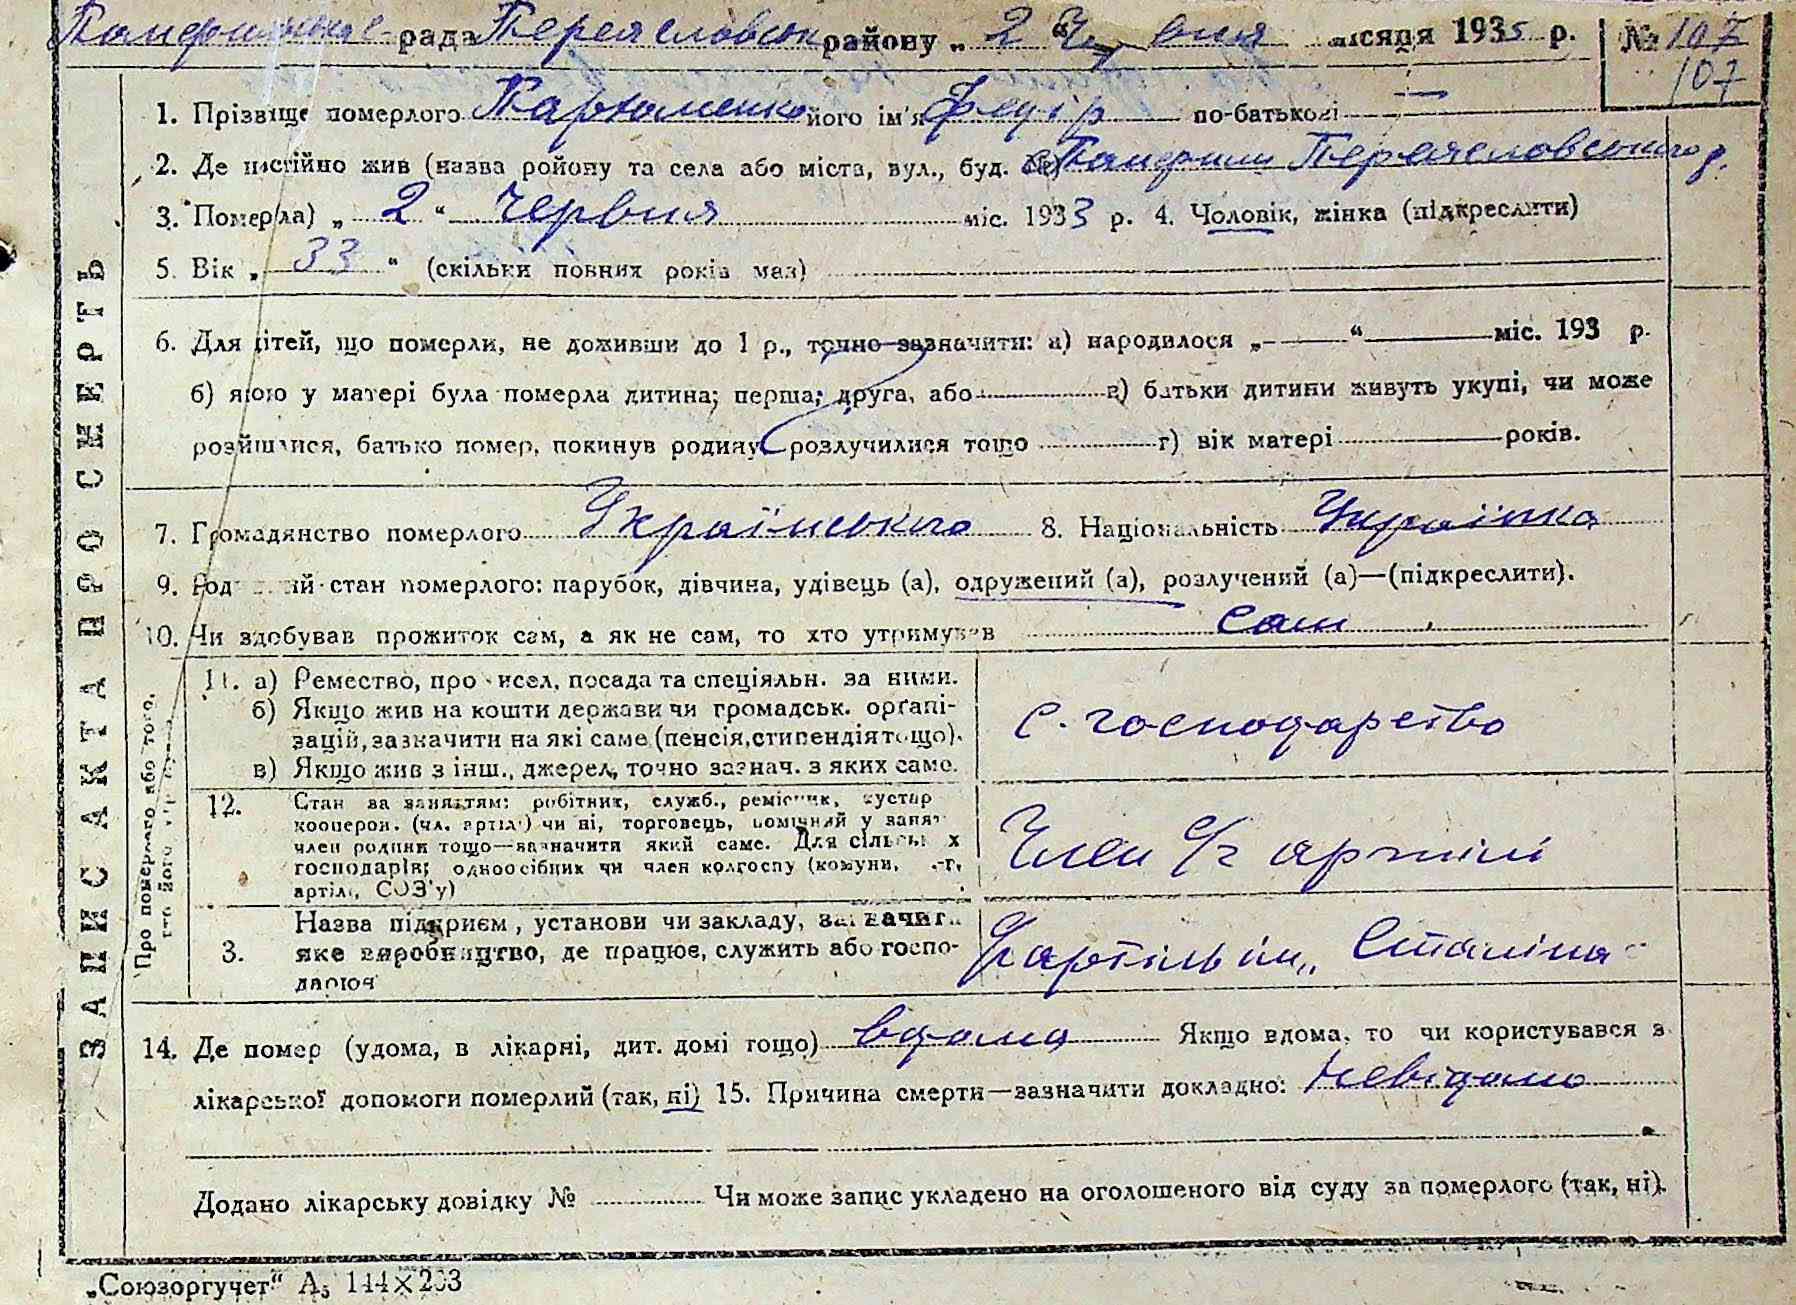 рада Переяславськ району „ 2 “ Червня місяця 1935 р. № 107
107
1. Прізвище померлого Пархоменко його ім'я Федір по-батькові —
2. Де постійно жив (назва ройону та села або міста, вул., буд. №) Помоклі Переяславського р.
3. Помер(ла) „ 2 “ Червня міс. 1933 р. 4. Чоловік, жінка (підкреслити)
5. Вік „ 33 “ (скільки повних років мав)
6. Для дітей, що померли, не доживши до 1 р., точно зазначити: а) народилося „ — “ міс. 193 р.
б) якою у матері була померла дитина; перша; друга, або в) батьки дитини живуть укупі, чи може
розійшлися, батько помер, покинув родину, розлучилися тощо г) вік матері років.
7. Громадянство померлого Українського 8. Національність Українка
9. Родинний стан померлого: парубок, дівчина, удівець (а), одружений (а), розлучений (а)—(підкреслити).
10. Чи здобував прожиток сам, а як не сам, то хто утримував сам
ЗАПИС АКТА ПРО СМЕРТЬ
Про померлого або того,
хто його утримував
11. а) Ремество, промисел, посада та спеціяльн. за ними.
б) Якщо жив на кошти держави чи громадськ. організацій, зазначити на які саме (пенсія, стипендія тощо).
в) Якщо жив з інш., джерел, точно зазнач. з яких само.
с. господарство
12. Стан за заняттям: робітник, служб., ремісник, кустар
кооперов. (чл. артілі) чи ні, торговець, помічний у занят
член родини тощо—зазначити який саме. Для сільськ х
господарів; одноосібник чи член колгоспу (комуни, с.-г,
артілі, СОЗ'у)
Член с/г артілі
3. Назва підприєм, установи чи закладу, зазначить
яке виробництво, де працює, служить або госпо-
дарює
артіль ім „ Сталіна
14. Де помер (удома, в лікарні, дит. домі тощо) вдома Якщо вдома, то чи користувався з
лікарської допомоги померлий (так, ні) 15. Причина смерти—зазначити докладно: Невідомо
Додано лікарську довідку № Чи може запис укладено на оголошеного від суду за померлого (так, ні).
„Союзоргучет“ А5 144×203